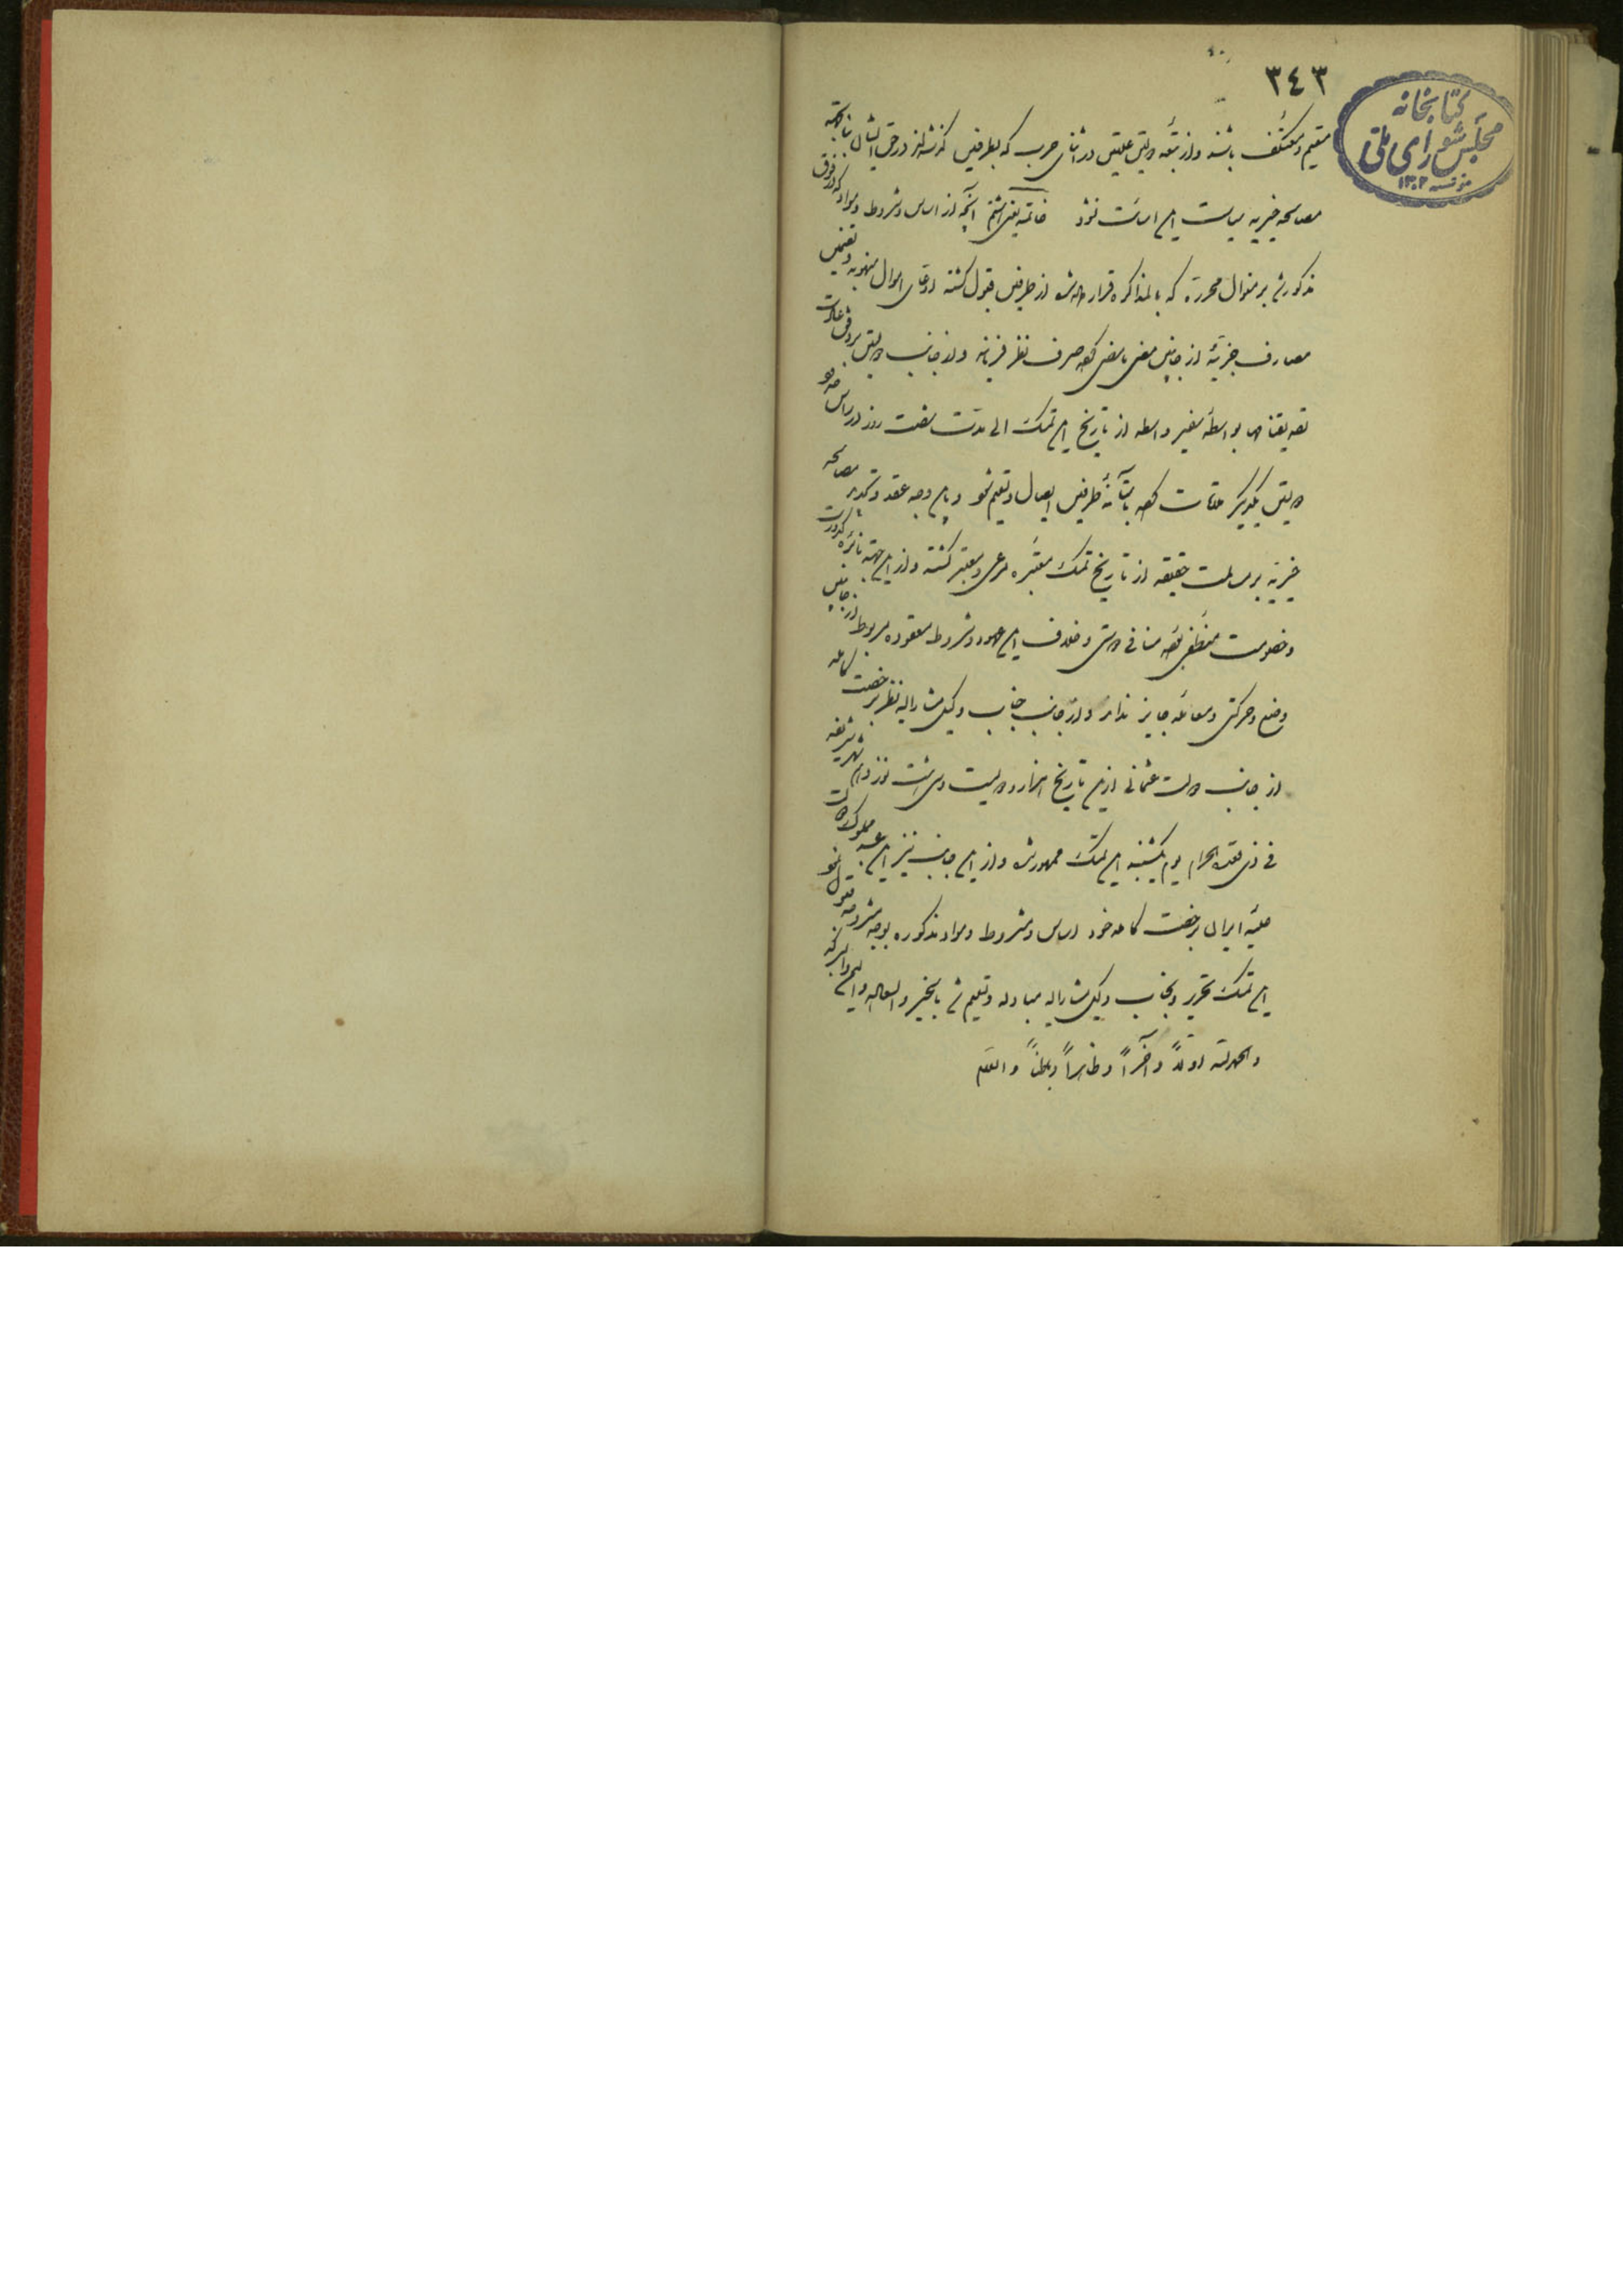 ٣٤٣
کتابخانه
مجلس شورای ملی
مؤسسه ١٣٠٢
مقیم و معتکف باشند و از تبعه دولتین علیتین در اثنای حرب که بطرفین گذشته‌اند در حق ایشان بنا بجهة
مصالحه خیریه سیاست این اساست نشود خاتمه یعنی هشتم آنچه از اساس و شروط و مواد که در فوق
مذکور شد بر منوال محرره که بالمذاکره قرار داده شد از طرفین قبول گشته ادعای اموال منهوبه و تضمین
مصارف حربیه از جانبین مضی ما مضی گفته صرف نظر فرمایند و از جانب دولتین بر وفق عادت
تصدیقنامها بواسطه سفیر و اسطه از تاریخ این تمسک الی مدت شصت روز در راس حدود
دولتین یکدیگر ملاقات کرده بآستانه طرفین ایصال و تسلیم شود و باین وجه عقد و تمدید مصالحه
خیریه بر مسالمت حقیقه از تاریخ تمسک معتبره مرعی و معتبر گشته و از این جهة نائره کدورت
و خصومت منطفی بوده منافی دوستی و خلاف این عهود و شروط معقوده مربوط از جانبین
وضع و حرکتی و معامله جایز ندارند و از جانب جناب وکیل مشارالیه نظر برخصت کامله
از جانب دولت عثمانی از این تاریخ هزار و دویست و سی و هشت نوزدهم شهر شریفه
فی ذی قعده الحرام یوم یکشنبه این تمسک ممهور شد و از این جانب نیز این عبد مملوک دولت
علیه ایران برخصت کامله خود اساس و شروط و مواد مذکوره بوجه مشروحه قبول نمود
این تمسک تحریر و بجناب وکیل مشارالیه مبادله و تسلیم شد بالخیر و السعاده و الیمن و البرکه
و الحمدلله اولاً و آخراً و ظاهراً و باطناً والسلام